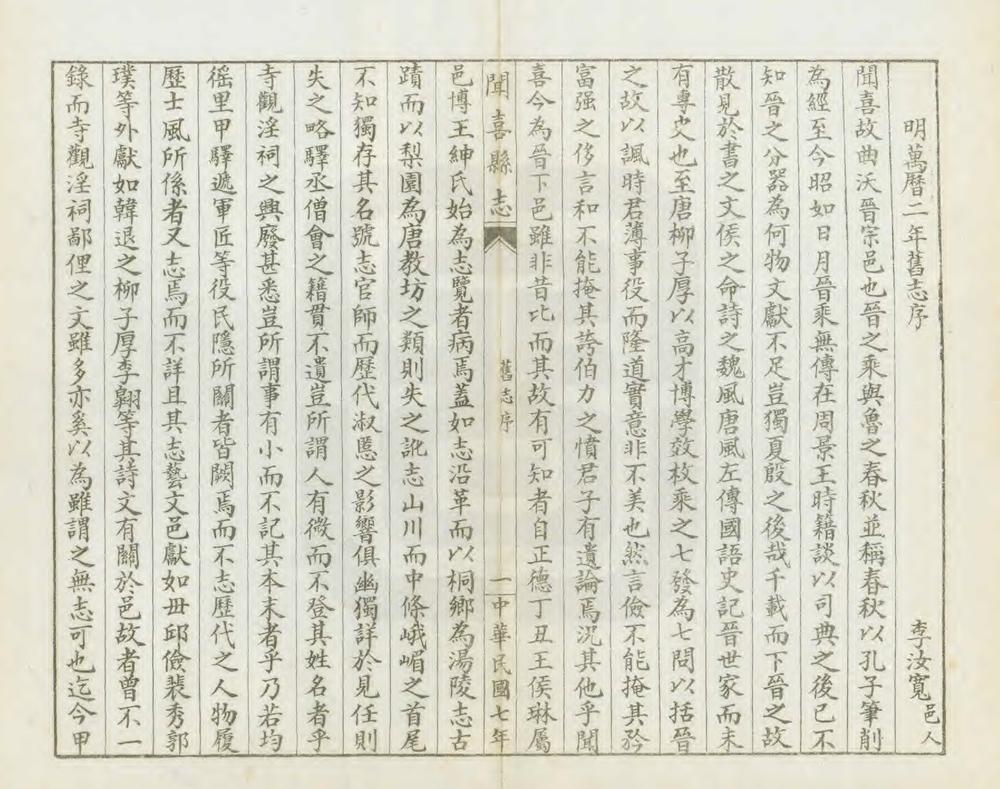 明萬曆二年舊志序 李汝寬邑人
聞喜故曲沃晉宗邑也晉之乘與魯之春秋並稱春秋以孔子筆削
為經至今昭如日月晉乘無傳在周景王時籍談以司典之後已不
知晉之分器為何物文獻不足豈獨夏殷之後哉千載而下晉之故
散見於書之文侯之命詩之魏風唐風左傳國語史記晉世家而未
有專史也至唐柳子厚以高才博學效枚乘之七發為七問以括晉
之故以諷時君薄事役而隆道實意非不美也然言儉不能掩其矜
富强之侈言和不能掩其誇伯力之憤君子有遺論焉況其他乎聞
喜今為晉下邑雖非昔比而其故有可知者自正德丁丑王侯琳屬
聞喜縣志 舊志序 一 中華民國七年
邑博王紳氏始為志覽者病焉蓋如志沿革而以桐鄉為湯陵志古
蹟而以梨園為唐教坊之類則失之訛志山川而中條峨嵋之首尾
不知獨存其名號志官師而歷代淑慝之影響俱幽獨詳於見任則
失之略驛丞僧會之籍貫不遺豈所謂人有微而不登其姓名者乎
寺觀淫祠之興廢甚悉豈所謂事有小而不記其本末者乎乃若均
徭里甲驛遞軍匠等役民隱所關者皆闕焉而不志歷代之人物履
歷士風所係者又志焉而不詳且其志藝文邑獻如毌邱儉裴秀郭
璞等外獻如韓退之柳子厚李翱等其詩文有關於邑故者曾不一
錄而寺觀淫祠鄙俚之文雖多亦奚以為雖謂之無志可也迄今甲